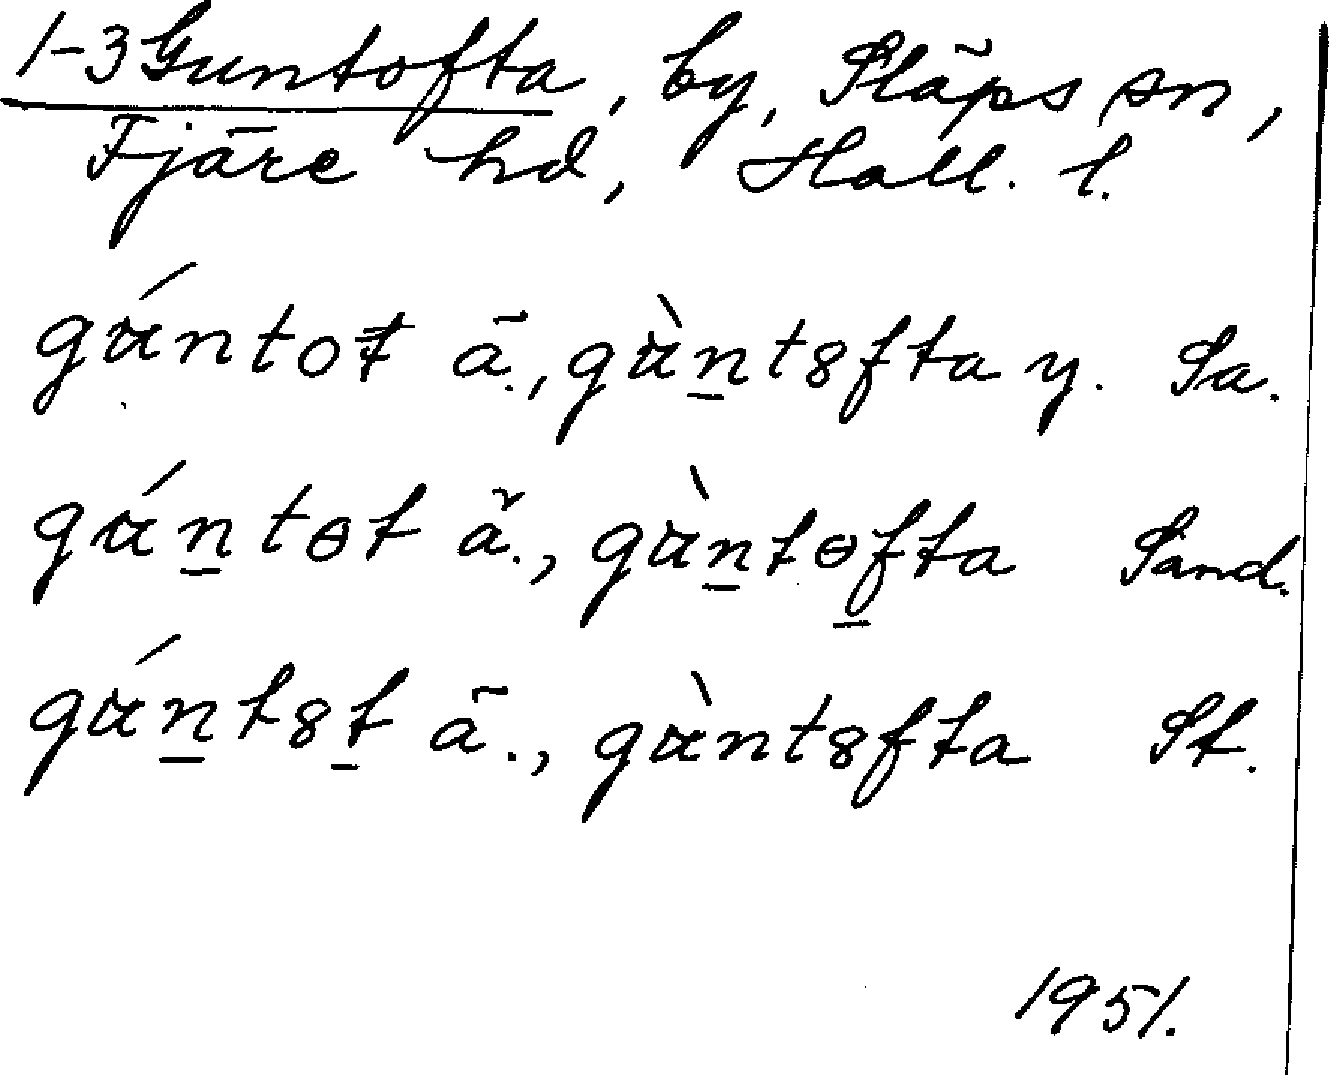 1-3 Guntofta, by, Släps sn,
Fjäre hd, Hall. l.
gúntot ä., gùntofta y. Sa.
gúntɵt ä., gùntɵfta Sand.
gúntȣt ä., gùntȣfta St.
1951.